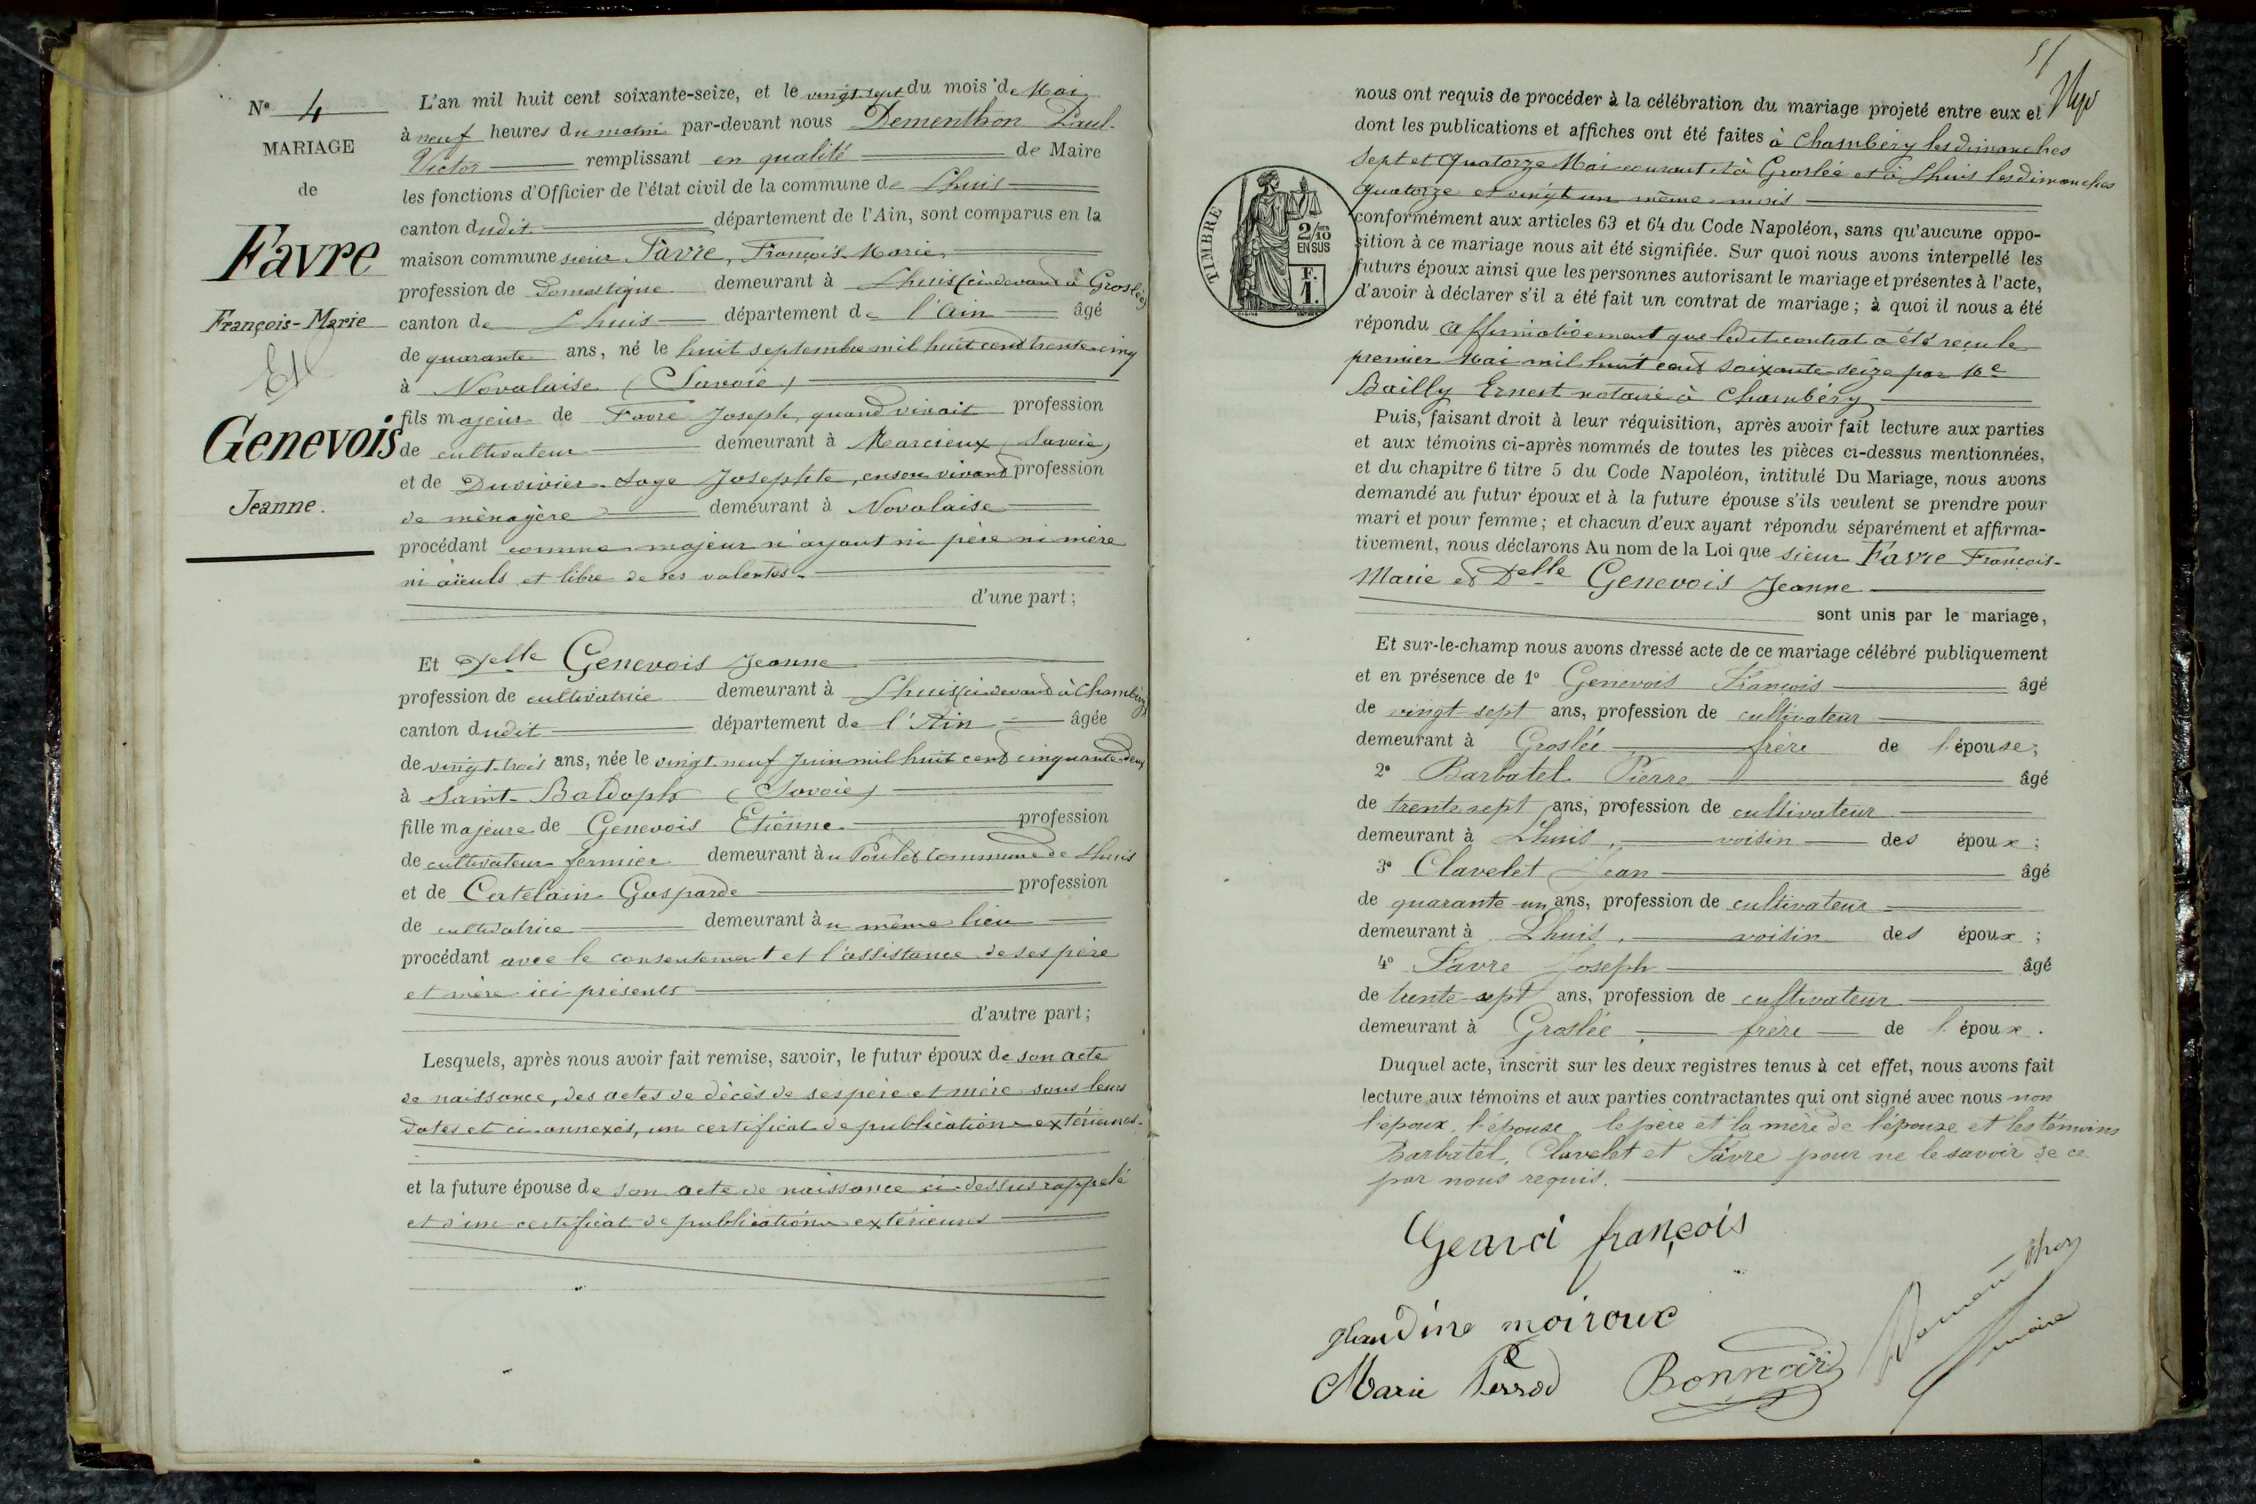 N° 4
MARIAGE
de
Favre
François-Marie
Et
Genevois
Jeanne.
L'an mil huit cent soixante-seize, et le vingt-sept du mois de Mai
à neuf heures du matin par-devant nous Dementhon Paul-
Victor remplissant en qualité de Maire
les fonctions d'Officier de l'état civil de la commune de Lhuis
canton dudit département de l'Ain, sont comparus en la
maison commune sieur Favre, François-Marie,
profession de Domestique demeurant à Lhuis (ci-devant à Groslée)
canton de Lhuis département de l'Ain âgé
de quarante ans, né le huit septembre mil huit cent trente-cinq
à Novalaise (Savoie)
fils majeur de Favre Joseph, quand vivait profession
de cultivateur demeurant à Marcieux (Savoie)
et de Duvivier-Loge Josephte, en son vivant profession
de ménagère demeurant à Novalaise
procédant comme majeur n'ayant ni père ni mère
ni aïeuls et libre de ses volontés.
d'une part ;
Et Delle Genevois Jeanne
profession de cultivatrice demeurant à Lhuis (ci-devant à Chambéry)
canton dudit département de l'Ain âgée
de vingt-trois ans, née le vingt-neuf Juin mil huit cent cinquante-deux
à Saint-Baldoph (Savoie)
fille majeure de Genevois Etienne profession
de cultivateur fermier demeurant au Poulet commune de Lhuis
et de Catelain Gasparde profession
de cultivatrice demeurant au même lieu
procédant avec le consentement et l'assistance de ses père
et mère ici présents
d'autre part ;
Lesquels, après nous avoir fait remise, savoir, le futur époux de son acte
de naissance, des actes de décès de ses père et mère sous leurs
dates et ci-annexés, un certificat de publications extérieures.
et la future épouse de son acte de naissance ci-dessus rappelé
et d'un certificat de publications extérieures
51
nous ont requis de procéder à la célébration du mariage projeté entre eux et
dont les publications et affiches ont été faites à Chambéry les dimanches
sept et quatorze Mai courant et à Groslée et à Lhuis les dimanches
quatorze et vingt un même mois
TIMBRE
2/10 EN SUS
F. 1.
conformément aux articles 63 et 64 du Code Napoléon, sans qu'aucune oppo-
sition à ce mariage nous ait été signifiée. Sur quoi nous avons interpellé les
futurs époux ainsi que les personnes autorisant le mariage et présentes à l'acte,
d'avoir à déclarer s'il a été fait un contrat de mariage ; à quoi il nous a été
répondu affirmativement que ledit contrat a été reçu le
premier Mai mil huit cent soixante seize par Me
Bailly Ernest notaire à Chambéry
Puis, faisant droit à leur réquisition, après avoir fait lecture aux parties
et aux témoins ci-après nommés de toutes les pièces ci-dessus mentionnées,
et du chapitre 6 titre 5 du Code Napoléon, intitulé Du Mariage, nous avons
demandé au futur époux et à la future épouse s'ils veulent se prendre pour
mari et pour femme ; et chacun d'eux ayant répondu séparément et affirma-
tivement, nous déclarons Au nom de la Loi que sieur Favre François-
Marie et Delle Genevois Jeanne
sont unis par le mariage,
Et sur-le-champ nous avons dressé acte de ce mariage célébré publiquement
et en présence de 1° Genevois François âgé
de vingt sept ans, profession de cultivateur
demeurant à Groslée, frère de l'épouse;
2° Barbatel Pierre âgé
de trente sept ans, profession de cultivateur
demeurant à Lhuis, voisin des époux ;
3° Clavelet Jean âgé
de quarante-un ans, profession de cultivateur
demeurant à Lhuis, voisin des époux ;
4° Favre Joseph âgé
de trente-sept ans, profession de cultivateur
demeurant à Groslée, frère de l'époux.
Duquel acte, inscrit sur les deux registres tenus à cet effet, nous avons fait
lecture aux témoins et aux parties contractantes qui ont signé avec nous non
l'époux, l'épouse, le père et la mère de l'épouse et les témoins
Barbatel, Clavelet et Favre pour ne le savoir de ce
par nous requis.
françois
moiroux
Marie Perrod
Bonnard
Dementhon
maire